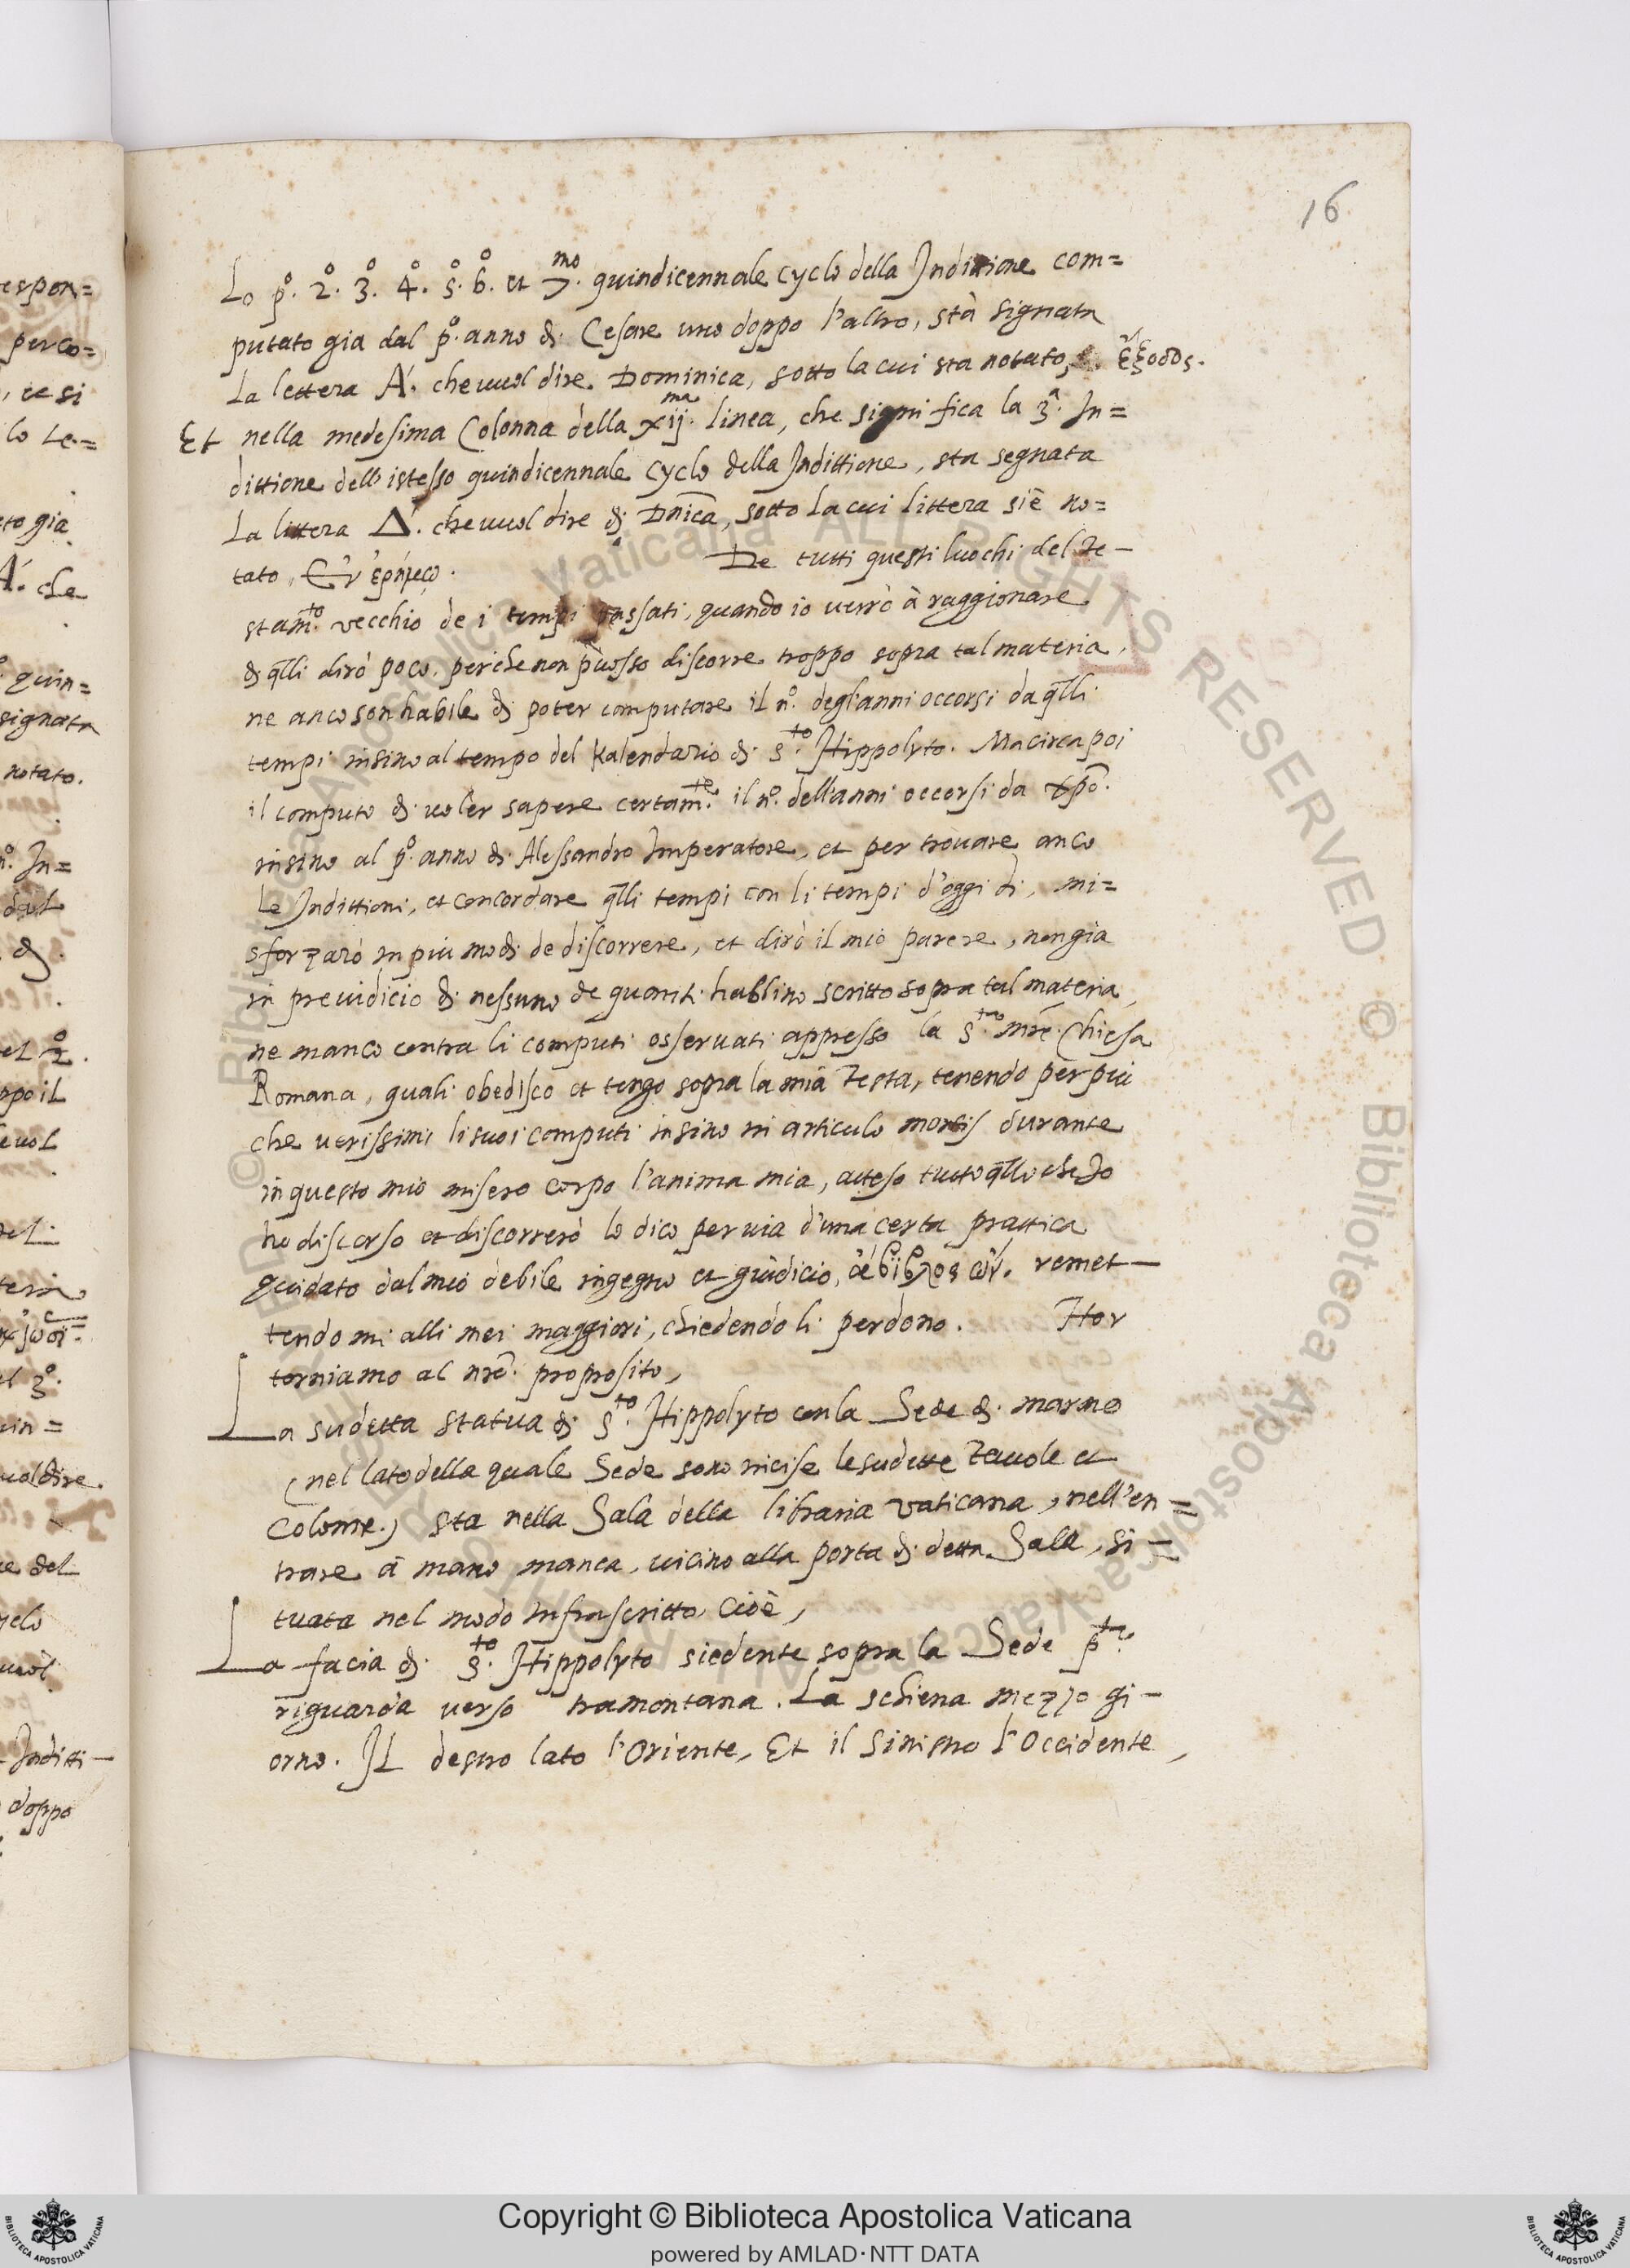 16
Lo p.º 2.º 3.º 4.º 5.º 6.º et 7.mo quindicennale cyclo della Indittione com=
putato gia dal p.º anno di Cesare uno doppo l'altro, stà signata
La lettera Á. che vuol dire. Dominica, sotto la cui sta notato, ἔξοδος.
Et nella medesima Colonna della xij.ma linea, che significa la 3.a In=
dittione dell'istesso quindicennale cyclo della Indittione, sta segnata
La littera Δ́. che vuol dire di Dnica, sotto la cui littera si è no=
tato, Ἐν ἐρήμῳ. De tutti questi luochi del Te-
stam.to vecchio de i tempi passati, quando io verrò à raggionare
di qlli dirò poco, perche non puosso discorre troppo sopra tal materia,
ne anco son habile di poter computare il n.º degl'anni occorsi da qlli
tempi insino al tempo del Kalendario di S.to Hippolyto. Ma circa poi
il computo di voler sapere certam.te il n.º dell'anni occorsi da Xpo.
insino al p.º anno di Alessandro Imperatore, et per trovare anco
Le Indittioni, et concordare qlli tempi con li tempi d'oggi di, mi=
sforzarò in piu modi de discorrere, et dirò il mio parere, non già
in preiudicio di nessuno de quanti habbino scritto sopra tal materia,
ne manco contra li computi osservati appresso la S.ta mre. Chiesa
Romana, quali obedisco et tengo sopra la mia Testa, tenendo per piu
che verissimi li suoi computi insino in articulo mortis durante
in questo mio misero corpo l'anima mia, atteso tutto qllo che Io
ho discorso et discorrerò lo dico per via d'una certa prattica
guidato dal mio debile ingegno et giudicio, remet-
tendomi alli mei maggiori, chiedendoli perdono. Hor
torniamo al nro. proposito,
La sudetta statua di S.to Hippolyto con la Sede di marmo
(nel lato della quale Sede sono incise le sudette Tavole et
Colonne.) sta nella Sala della libraria vaticana, nell'en=
trare à mano manca, vicino alla porta di detta Sala, si-
tuata nel modo infrascritto, Cioè,
La facia di S.to Hippolyto siedente sopra la Sede p.ta
riguarda verso tramontana. La schiena mezzo gi-
orno. IL destro lato l'Oriente, Et il sinistro l'Occidente,
Copyright © Biblioteca Apostolica Vaticana
powered by AMLAD·NTT DATA